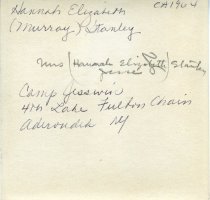 Hannah Elizabeth CA1904
(Murray P Stanley
Mrs (Hannah Elizabeth) Stanley
Jesse
Camp Jesswin
4th Lake Fulton Chain
Adirondack NY